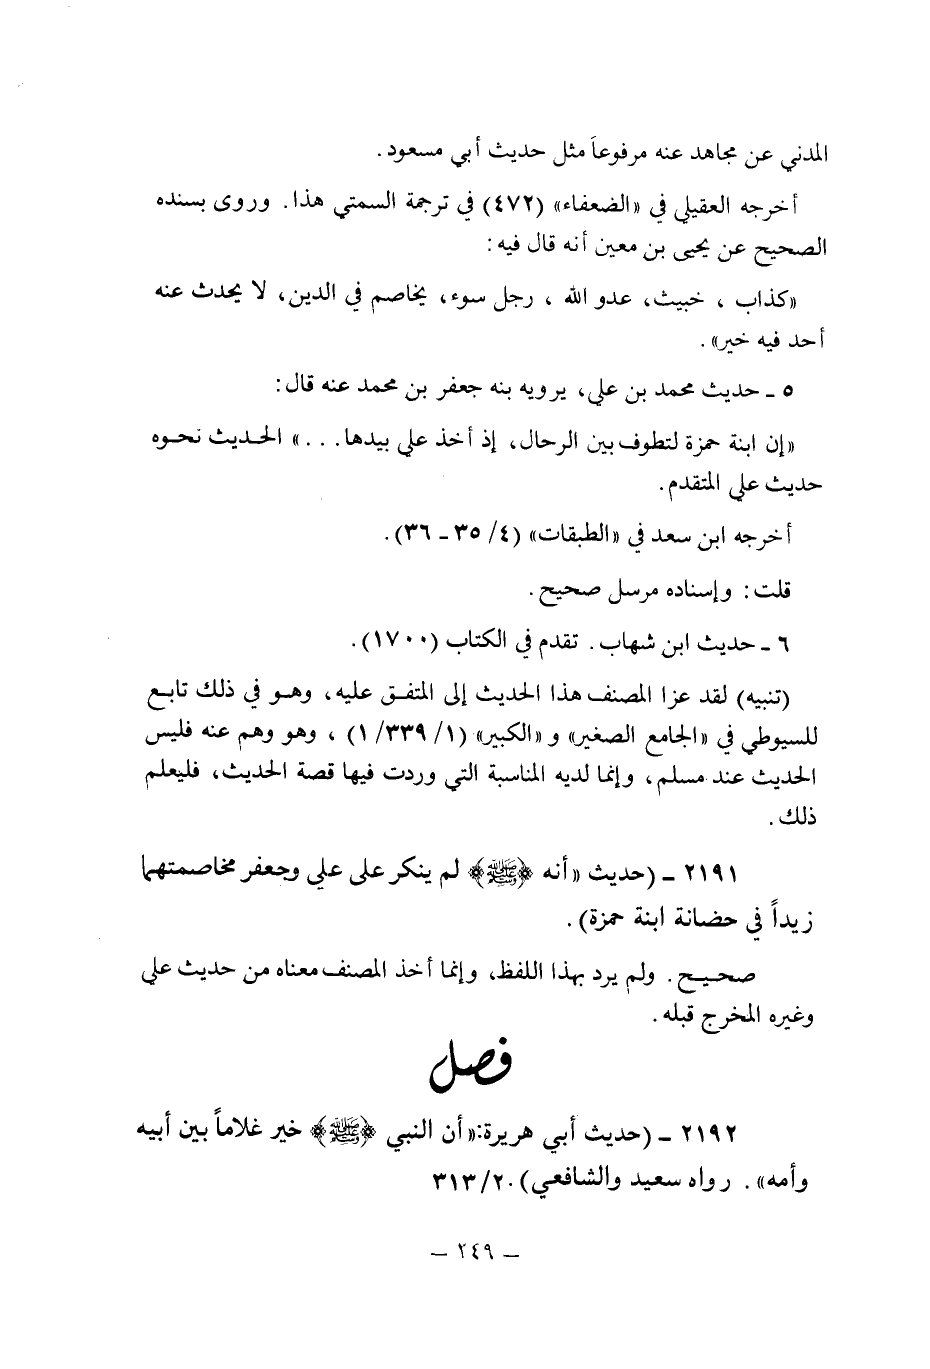 المدني عن مجاهد عنه مرفوعاً مثل حديث أبي مسعود .
أخرجه العقيلي في «الضعفاء» (٤٧٢) في ترجمة السمتي هذا . وروى بسنده
الصحيح عن يحيى بن معين أنه قال فيه :
«كذاب ، خبيث ، عدو الله ، رجل سوء ، يخاصم في الدين ، لا يحدث عنه
أحد فيه خير» .
٥ ـ حديث محمد بن علي ، يرويه بنه جعفر بن محمد عنه قال :
«إن ابنة حمزة لتطوف بين الرحال ، إذ أخذ علي بيدها . . . » الحديث نحوه
حديث علي المتقدم .
أخرجه ابن سعد في «الطبقات» (٤/ ٣٥ ـ ٣٦) .
قلت : وإسناده مرسل صحيح .
٦ ـ حديث ابن شهاب . تقدم في الكتاب (١٧٠٠) .
(تنبيه) لقد عزا المصنف هذا الحديث إلى المتفق عليه ، وهو في ذلك تابع
للسيوطي في «الجامع الصغير» و «الكبير» (١/ ٣٣٩/ ١) ، وهو وهم عنه فليس
الحديث عند مسلم ، وإنما لديه المناسبة التي وردت فيها قصة الحديث ، فليعلم
ذلك .
٢١٩١ ـ (حديث «أنه ﴿ﷺ﴾ لم ينكر على علي وجعفر مخاصمتهما
زيداً في حضانة ابنة حمزة) .
صحيح . ولم يرد بهذا اللفظ ، وإنما أخذ المصنف معناه من حديث علي
وغيره المخرج قبله .
فصل
٢١٩٢ ـ (حديث أبي هريرة :«أن النبي ﴿ﷺ﴾ خير غلاماً بين أبيه
وأمه» . رواه سعيد والشافعي) ٣١٣/٢٠
ـ ٢٤٩ ـ